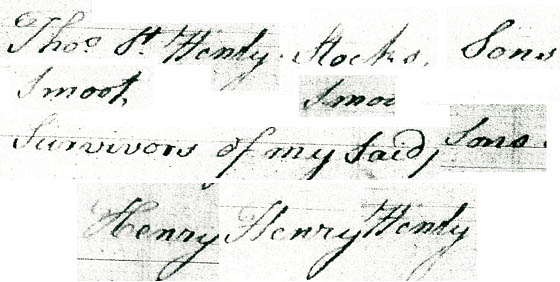 Thos. St. Henly. Stocks. Sons
Smoot, Smoo
Survivors of my Said, Sons.
Henry Henry Henly